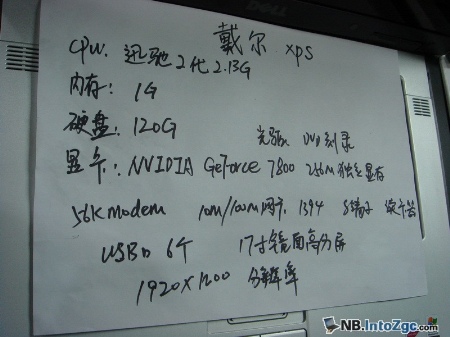 DELL
戴尔 xps
CPU: 迅驰2代 2.13G
内存: 1G
硬盘: 120G 光驱 DVD刻录
显卡: NVIDIA GeForce 7800 256M 独立显存
56K modem 10m/100m网卡 1394 S端子 读卡器
USB口 6个 17寸镜面高分屏
1920×1200 分辨率
NB.IntoZgc.com